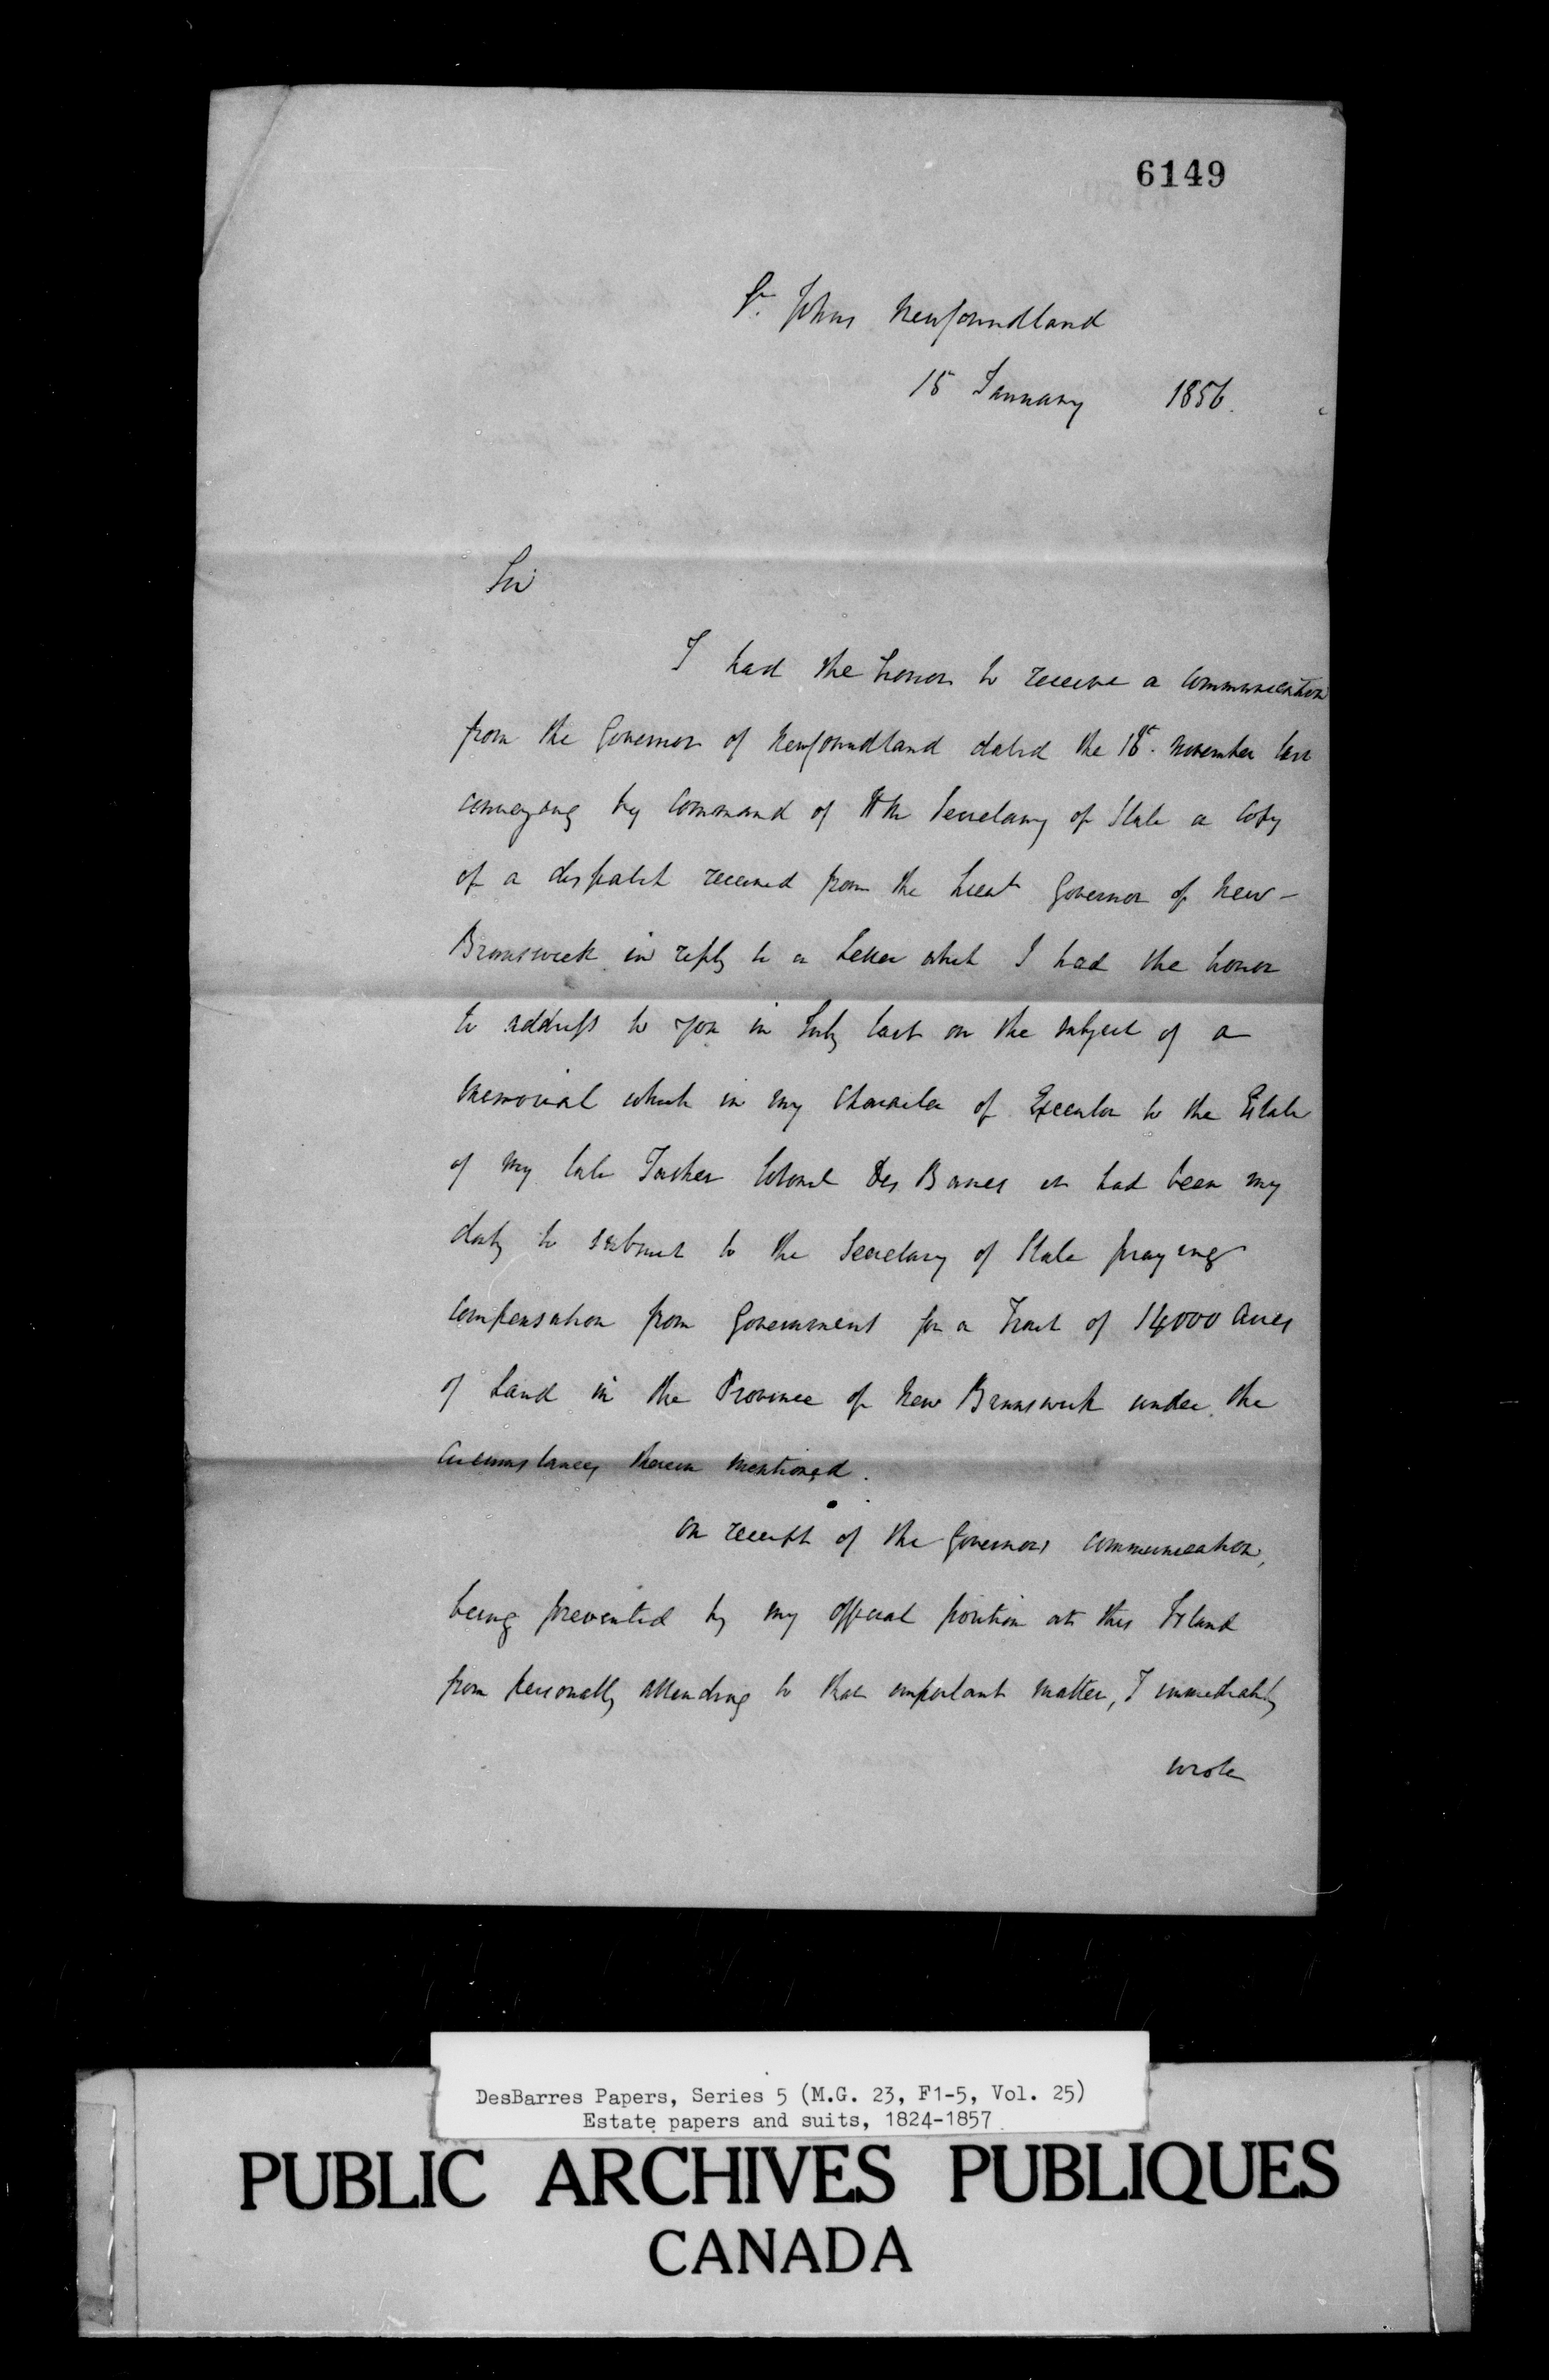 6149
St. Johns Newfoundland
15 January 1856.
Sir
I had the honor to receive a Communication
from the Governor of Newfoundland dated the November last
conveying by Command of the Secretary of State a Copy
of a dispatch received from the Lieut Governor of New-
Brunswick in reply to a Letter which I had the honor
to address to you in July last on the subject of a
Memorial which in my Character of Executor to the Estate
of my late Father Colonel Des Barres it had been my
duty to submit to the Secretary of State praying
Compensation from Government for a Tract of 14000 Acres
of Land in the Province of New Brunswick under the
Circumstances therein mentioned.
On receipt of the Governors communication,
being prevented by my official position at this Island
from personally attending to that important matter, I immediately
wrote
DesBarres Papers, Series 5 (M.G. 23, F1-5, Vol. 25)
Estate papers and suits, 1824-1857
PUBLIC ARCHIVES PUBLIQUES
CANADA